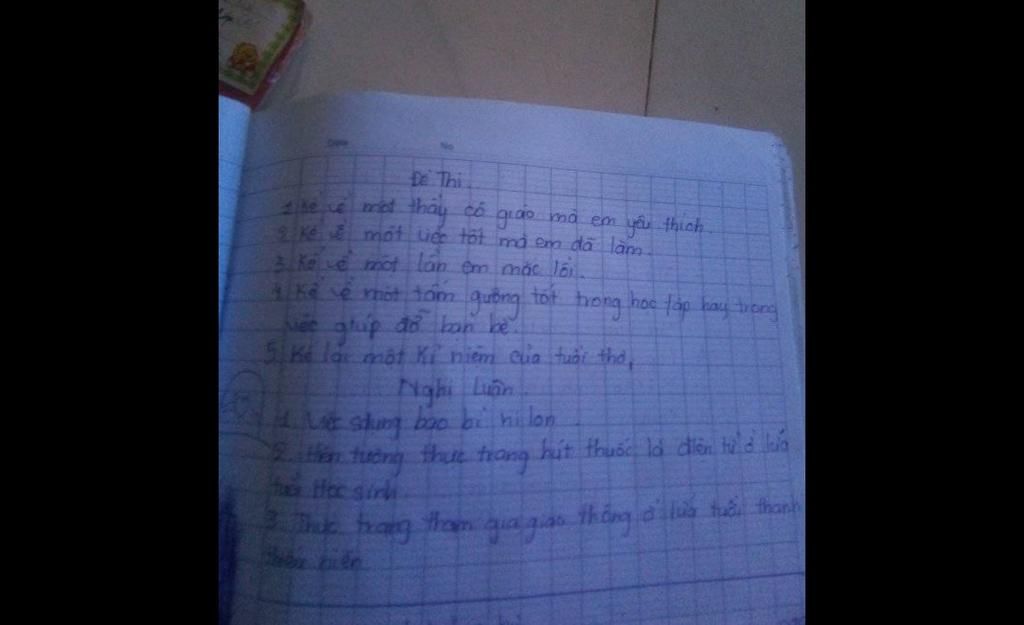 Date No
Đề Thi.
1. Kể về một thầy cô giáo mà em yêu thích.
2. Kể về một việc tốt mà em đã làm.
3. Kể về một lần em mắc lỗi.
4. Kể về một tấm gương tốt trong học tập hay trong
việc giúp đỡ bạn bè.
5. Kể lại một kỉ niệm của tuổi thơ,
Nghị Luận.
1. Việc sdụng bao bì ni lon.
2. Hiện tượng thực trạng hút thuốc lá điện tử ở lứa
tuổi Học sinh.
3. Thực trạng tham gia giao thông ở lứa tuổi thanh
thiếu niên